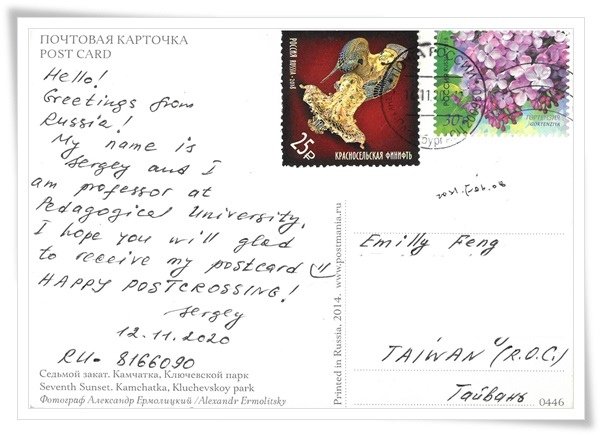 ПОЧТОВАЯ КАРТОЧКА
POST CARD
Hello!
Greetings from
Russia!
My name is
Sergey and I
am professor at
Pedagogical University.
I hope you will glad
to receive my postcard
HAPPY POSTCROSSING!
Sergey
12.11.2020
RU- 8166090
Седьмой закат. Камчатка, Ключевской парк
Seventh Sunset. Kamchatka, Kluchevskoy park
Фотограф Александр Ермолицкий /Alexandr Ermolitsky
Printed in Russia. 2014. www.postmania.ru
РОССИЯ RUSSIA · 2018
25р
КРАСНОСЕЛЬСКАЯ ФИНИФТЬ
РОССИЯ
30
ГОРТЕНЗИЯ
/GORTENZIYA
Emilly Feng
TAIWAN (R.O.C.)
Тайвань
0446